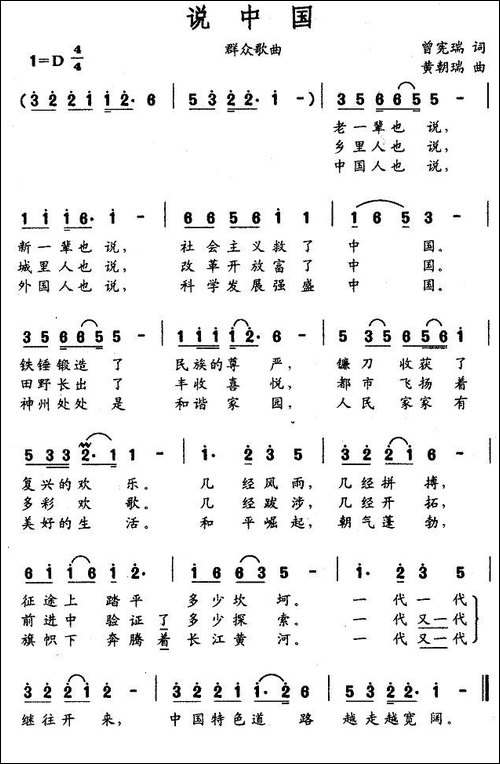 说中国
1=D 4/4
群众歌曲
曾宪瑞 词
黄朝瑞 曲
(3 2 2 1 1 2· 6 | 5 3 2 2 1 - ) | 3 5 6 6 5 5
老一辈也 说,
乡里人也 说,
中国人也 说,
1 1 1 6· 1 - | 6 6 5 6 1 1 | 1 6 5 3 -
新一辈也说, 社会主义救了 中 国。
城里人也说, 改革开放富了 中 国。
外国人也说, 科学发展强盛 中 国。
3 5 6 6 5 5 | 1 1 1 1 2· 6 | 5 3 5 6 5 6 1
铁锤锻造 了 民族的尊 严, 镰刀 收获了
田野长出 了 丰收喜 悦, 都市 飞扬着
神州处处 是 和谐家 园, 人民 家家有
5 3 3 2· 1 1 | 1· 2 3 5 | 3 2 2 1 6 -
复兴的欢 乐。 几 经风雨, 几经拼 搏,
多彩 欢 歌。 几 经跋涉, 几经开 拓,
美好的生 活。 和 平崛起, 朝气蓬 勃,
6 1 1 6 1 2· | 1 6 6 3 5 - | 1· 2 3 5
征途上 踏平 多少坎 坷。 一 代一代
前进中 验证了 多少探 索。 一 代又一代
旗帜下 奔腾着 长江黄 河。 一 代又一代
3 2 2 1 2 - | 3 2 2 2 1 1· 2 6 | 5 3 2 2· 1 - ‖
继往开 来, 中国特色道 路 越走越宽 阔。